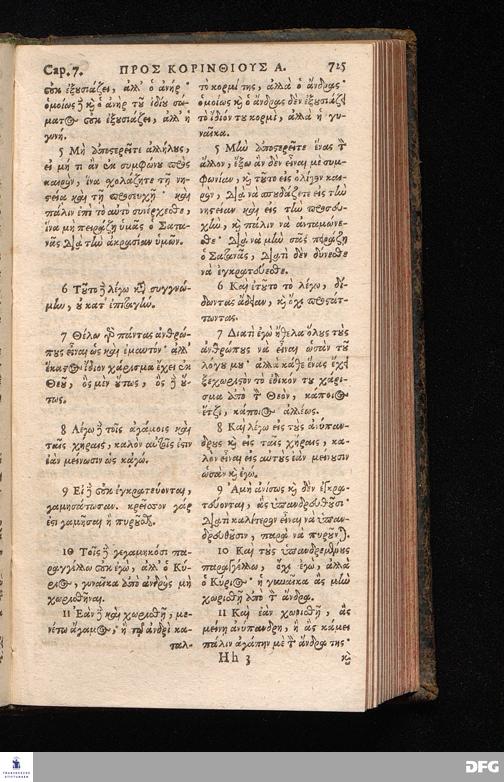 Cap. 7. ΠΡΟΣ ΚΟΡΙΝΘΙΟΥΣ Α. 725
οὐκ ἐξουσιάζει, ἀλλ' ὁ ἀνήρ·
ὁμοίως δὲ καὶ ὁ ἀνὴρ τοῦ ἰδίου σώ-
ματος οὐκ ἐξουσιάζει, ἀλλ' ἡ
γυνή.
5 Μὴ ἀποστερεῖτε ἀλλήλους,
εἰ μή τι ἂν ἐκ συμφώνου πρὸς
καιρὸν, ἵνα σχολάζητε τῇ νη-
στείᾳ καὶ τῇ προσευχῇ· καὶ
πάλιν ἐπὶ τὸ αὐτὸ συνέρχεσθε,
ἵνα μὴ πειράζῃ ὑμᾶς ὁ Σατα-
νᾶς διὰ τὴν ἀκρασίαν ὑμῶν.
6 Τοῦτο δὲ λέγω κατὰ συγγνώ-
μην, οὐ κατ' ἐπιταγήν.
7 Θέλω γὰρ πάντας ἀνθρώ-
πους εἶναι ὡς καὶ ἐμαυτόν· ἀλλ'
ἕκαστος ἴδιον χάρισμα ἔχει ἐκ
Θεοῦ, ὃς μὲν οὕτως, ὃς δὲ οὕ-
τως.
8 Λέγω δὲ τοῖς ἀγάμοις καὶ
ταῖς χήραις, καλὸν αὐτοῖς ἐστιν
ἐὰν μείνωσιν ὡς κἀγώ.
9 Εἰ δὲ οὐκ ἐγκρατεύονται,
γαμησάτωσαν. κρεῖσσον γάρ
ἐστι γαμῆσαι ἢ πυροῦσθαι.
10 Τοῖς δὲ γεγαμηκόσι πα-
ραγγέλλω οὐκ ἐγὼ, ἀλλ' ὁ Κύ-
ριος, γυναῖκα ἀπὸ ἀνδρὸς μὴ
χωρισθῆναι.
11 Ἐὰν δὲ καὶ χωρισθῇ, με-
νέτω ἄγαμος, ἢ τῷ ἀνδρὶ κα-
ταλ-
τὸ κορμί της, ἀλλὰ ὁ ἄνδρας·
ὁμοίως καὶ ὁ ἄνδρας δὲν ἐξουσιάζει
τὸ ἴδιόν του κορμὶ, ἀλλὰ ἡ γυ-
ναῖκα.
5 Μὴν ἀποστερεῖτε ἕνας τὸν
ἄλλον, ἔξω ἂν δὲν εἶναι μὲ συμ-
φωνίαν, καὶ τοῦτο εἰς ὀλίγον και-
ρὸν, διὰ νὰ σπουδάζετε εἰς τὴν
νηστείαν καὶ εἰς τὴν προσευ-
χὴν, καὶ πάλιν νὰ ἀνταμώνε-
σθε· διὰ νὰ μὴν σᾶς πειράζῃ
ὁ Σατανᾶς, διατὶ δὲν δύνεσθε
νὰ ἐγκρατεύεσθε.
6 Καὶ ἐτοῦτο τὸ λέγω, δί-
δωντας ἄδειαν, καὶ ὄχι προστάτ-
τωντας.
7 Διατὶ ἐγὼ ἤθελα ὅλους τοὺς
ἀνθρώπους νὰ εἶναι ὡσὰν τοῦ
λόγου μου· ἀλλὰ κάθε ἕνας ἔχει
ξεχωριστὸν τὸ ἐδικόν του χάρι-
σμα ἀπὸ τὸν Θεὸν, κάποιος
ἔτζι, κάποιος ἀλλέως.
8 Καὶ λέγω εἰς τοὺς ἀνύπαν-
δρους καὶ εἰς ταῖς χήραις, κα-
λὸν εἶναι εἰς αὐτοὺς ἐὰν μείνουσιν
ὡσὰν καὶ ἐγώ.
9 Ἀμὴ ἀνίσως καὶ δὲν ἐγκρα-
τεύονται, ἂς ὑπανδρευθοῦσι·
διατὶ καλίτερον εἶναι νὰ ὑπαν-
δρευθοῦσιν, παρὰ νὰ πυροῦνται.
10 Καὶ τοὺς ὑπανδρεμένους
παραγγέλλω, ὄχι ἐγὼ, ἀλλὰ
ὁ Κύριος· ἡ γυναῖκα ἂς μὴν
χωρισθῇ ἀπὸ τὸν ἄνδρα.
11 Καὶ ἐὰν χωρισθῇ, ἂς
μείνῃ ἀνύπανδρη, ἢ ἂς κάμει
πάλιν ἀγάπην μὲ τὸν ἄνδρα της·
Hh 3 καὶ
FRANCKESCHE STIFTUNGEN
DFG